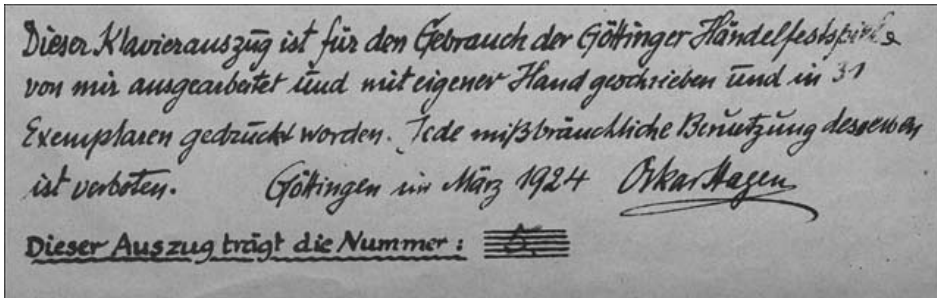 Dieser Klavierauszug ist für den Gebrauch der Göttinger Händelfestspiele
von mir ausgearbeitet und mit eigener Hand geschrieben und in 31
Exemplaren gedruckt worden. Jede mißbräuchliche Benutzung desselben
ist verboten. Göttingen im März 1924 Oskar Hagen
Dieser Auszug trägt die Nummer: 5.